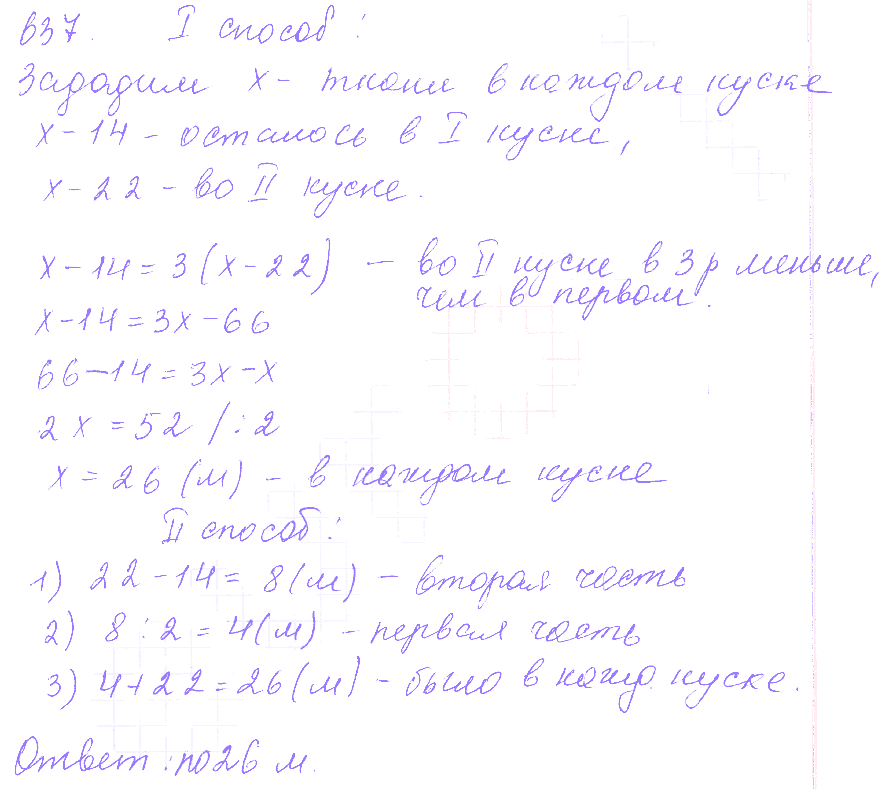 637. I способ:
Зададим x - ткани в каждом куске
x - 14 - осталось в I куске,
x - 22 - во II куске.
x - 14 = 3 (x - 22) — во II куске в 3 р меньше,
чем в первом.
x - 14 = 3x - 66
66 - 14 = 3x - x
2x = 52 / : 2
x = 26 (м) - в каждом куске
II способ:
1) 22 - 14 = 8 (м) - вторая часть
2) 8 : 2 = 4 (м) - первая часть
3) 4 + 22 = 26 (м) - было в кажд. куске.
Ответ: по 26 м.